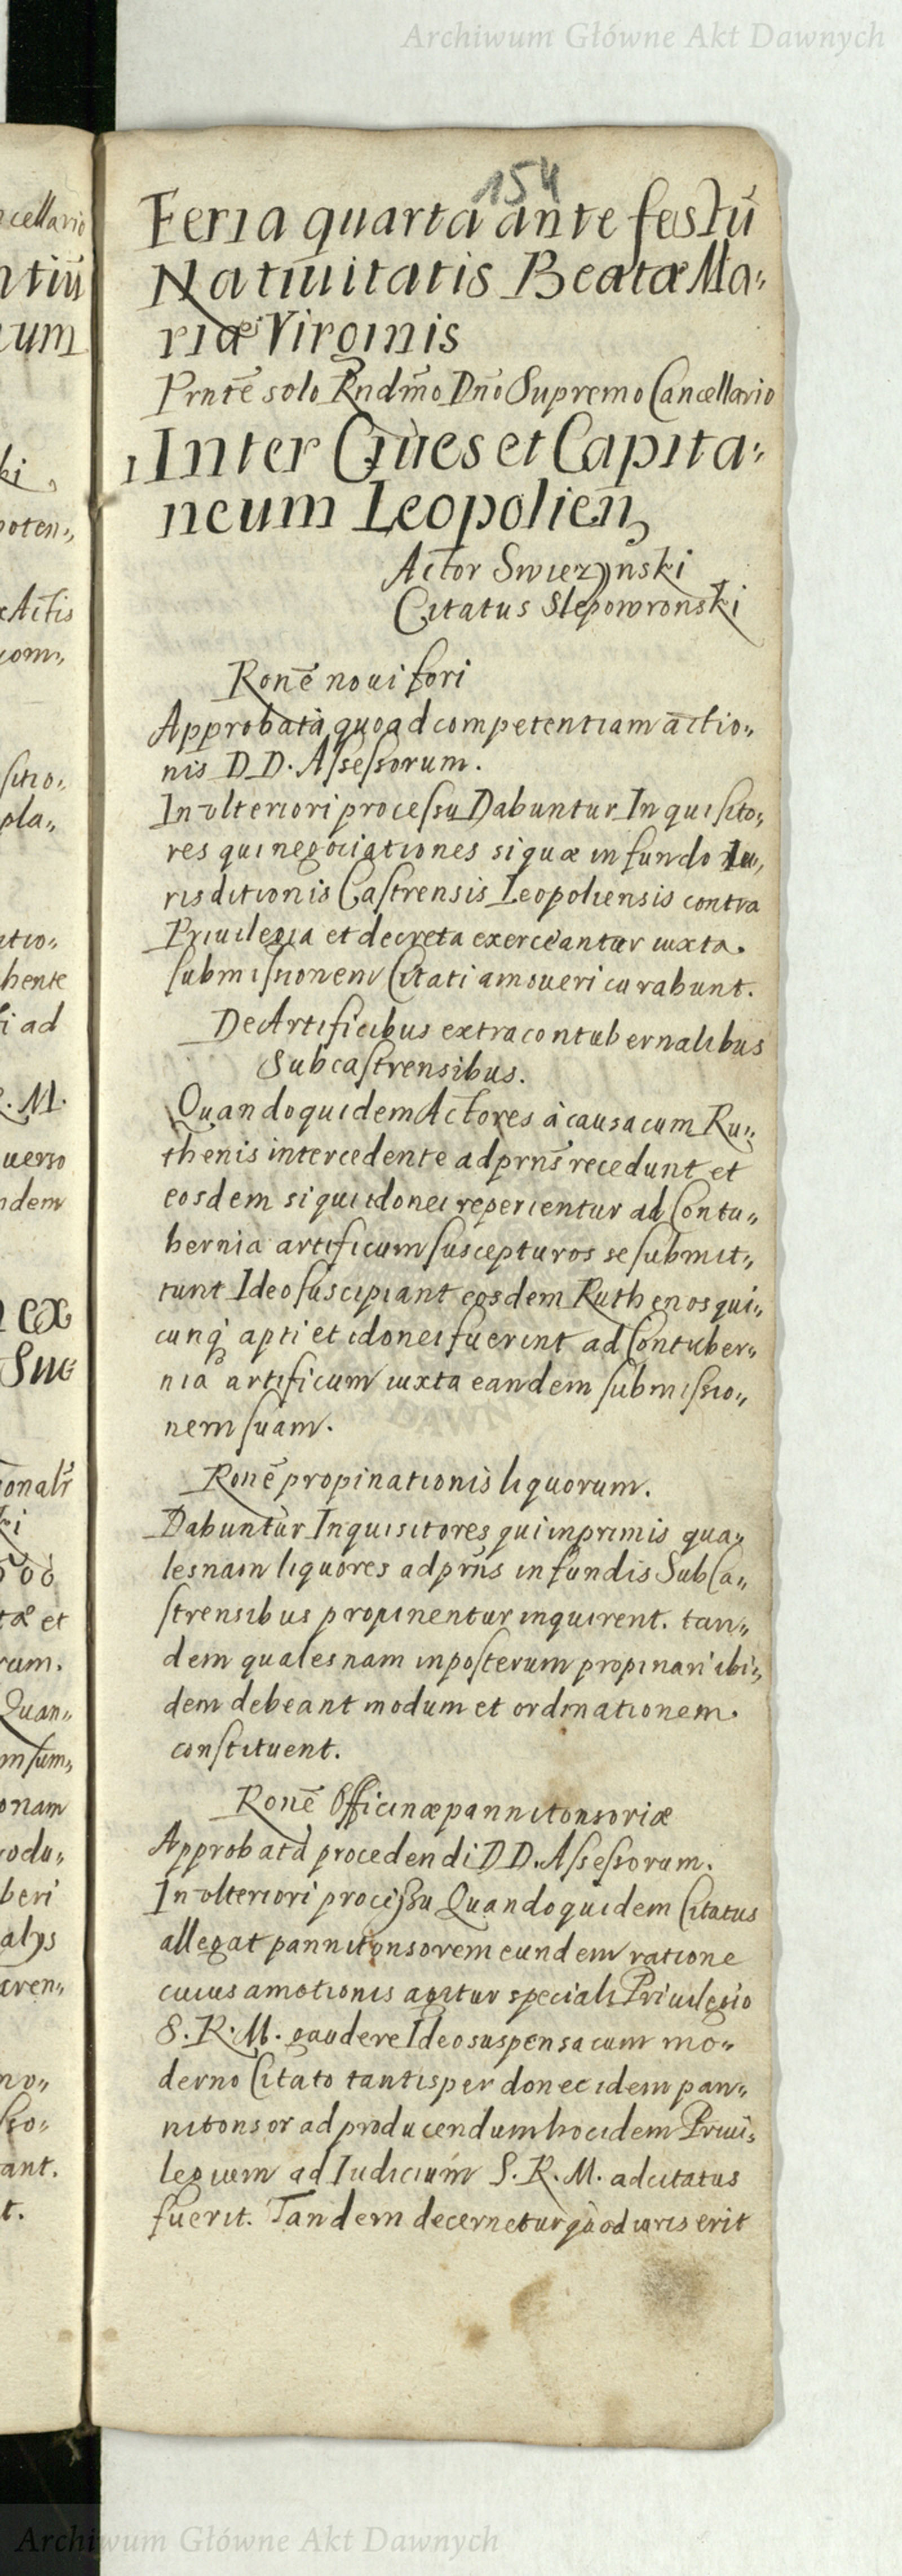 Archiwum Główne Akt Dawnych
154
Feria quarta ante festū
Natiuitatis Beatæ Ma:
riæ Virginis
Prnte solo Rndmo Dno Supremo Cancellario
1 Inter Ciues et Capita:
neum Leopolien
Actor Swiezynski
Citatus Slepowronski
Rone noui fori
Approbata quoad competentiam actio„
nis D D. Assessorum.
In vlteriori processu Dabuntur Inquisito,
res qui negociationes si quæ in fundo Iu,
risditionis Castrensis Leopoliensis contra
Priuilegia et decreta exerceantur iuxta.
submissionem Citati amoueri curabunt.
De Artificibus extracontubernalibus
Subcastrensibus.
Quandoquidem Actores à causa cum Ru„
thenis intercedente ad prns recedunt et
eosdem si qui idonei reperientur ad Contu„
bernia artificum suscepturos se submit„
tunt Ideo suscipiant eosdem Ruthenos qui„
cunq apti et idonei fuerint ad Contuber„
nia artificum iuxta eandem submissio„
nem suam.
Rone propinationis liquorum.
Dabuntur Inquisitores qui inprimis qua„
lesnam liquores ad prns in fundis SubCa„
strensibus propinentur inquirent. tan„
dem qualesnam inposterum propinari ibi„
dem debeant modum et ordinationem.
constituent.
Rone Officinæ pannitonsoriæ
Approbata procedendi D D. Assessorum.
In vlteriori processu Quandoquidem Citatus
allegat pannitonsorem eundem ratione
cuius amotionis agitur speciali Priuilegio
S. R. M. gaudere Ideo suspensa cum mo„
derno Citato tantisper donec idem pan„
nitonsor ad producendum hoc idem Priui„
legium ad Iudicium S. R. M. adcitatus
fuerit. Tandem decernetur quod iuris erit
Archiwum Główne Akt Dawnych